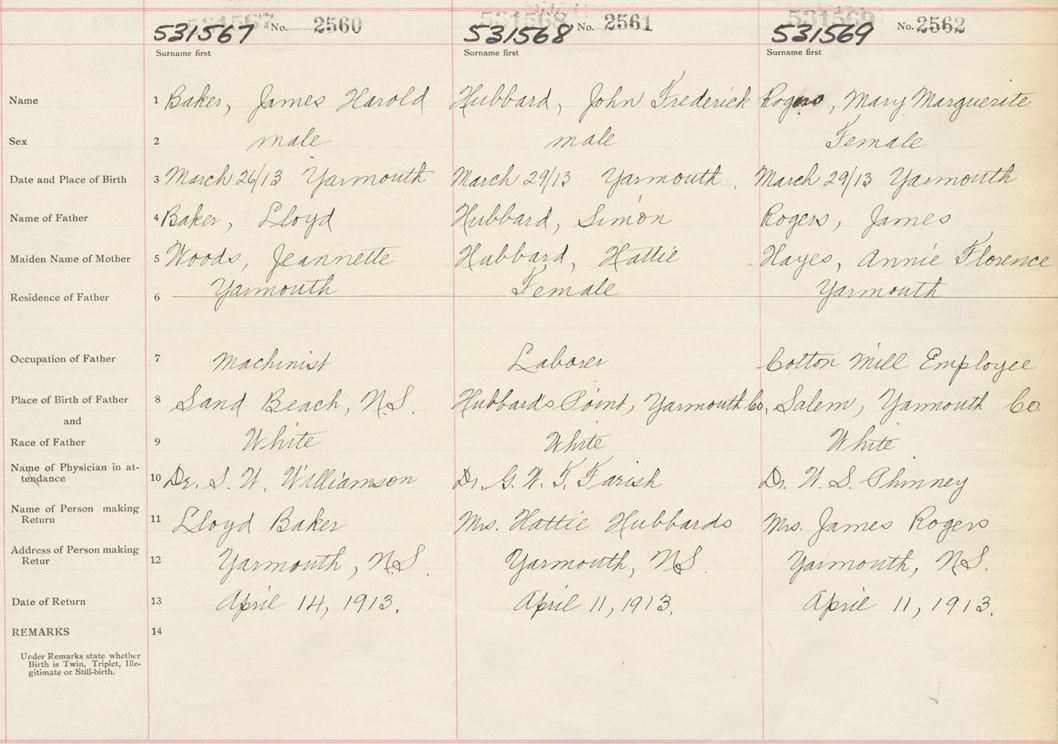 531567 No. 2560 531568 No. 2561 531569 No. 2562
Surname first Surname first Surname first
Name 1 Baker, James Harold Hubbard, John Frederick Rogers, Mary Marguerite
Sex 2 male male Female
Date and Place of Birth 3 March 26/13 Yarmouth March 29/13 Yarmouth. March 29/13 Yarmouth
Name of Father 4 Baker, Lloyd Hubbard, Simon Rogers, James
Maiden Name of Mother 5 Woods, Jeannette Hubbard, Hattie Hayes, Annie Florence
Residence of Father 6 Yarmouth Female Yarmouth
Occupation of Father 7 Machinist Laborer Cotton Mill Employee
Place of Birth of Father 8 Sand Beach, N.S. Hubbards Point, Yarmouth Co, Salem, Yarmouth Co
and
Race of Father 9 White White White
Name of Physician in at-
tendance 10 Dr. S. W. Williamson Dr. G. W. T. Farish Dr. W. S. Phinney
Name of Person making
Return 11 Lloyd Baker Mrs. Hattie Hubbards Mrs. James Rogers
Address of Person making
Retur 12 Yarmouth, N.S. Yarmouth, NS. Yarmouth, N.S.
Date of Return 13 April 14, 1913. April 11, 1913. April 11, 1913.
REMARKS 14
Under Remarks state whether
Birth is Twin, Triplet, Ille-
gitimate or Still-birth.